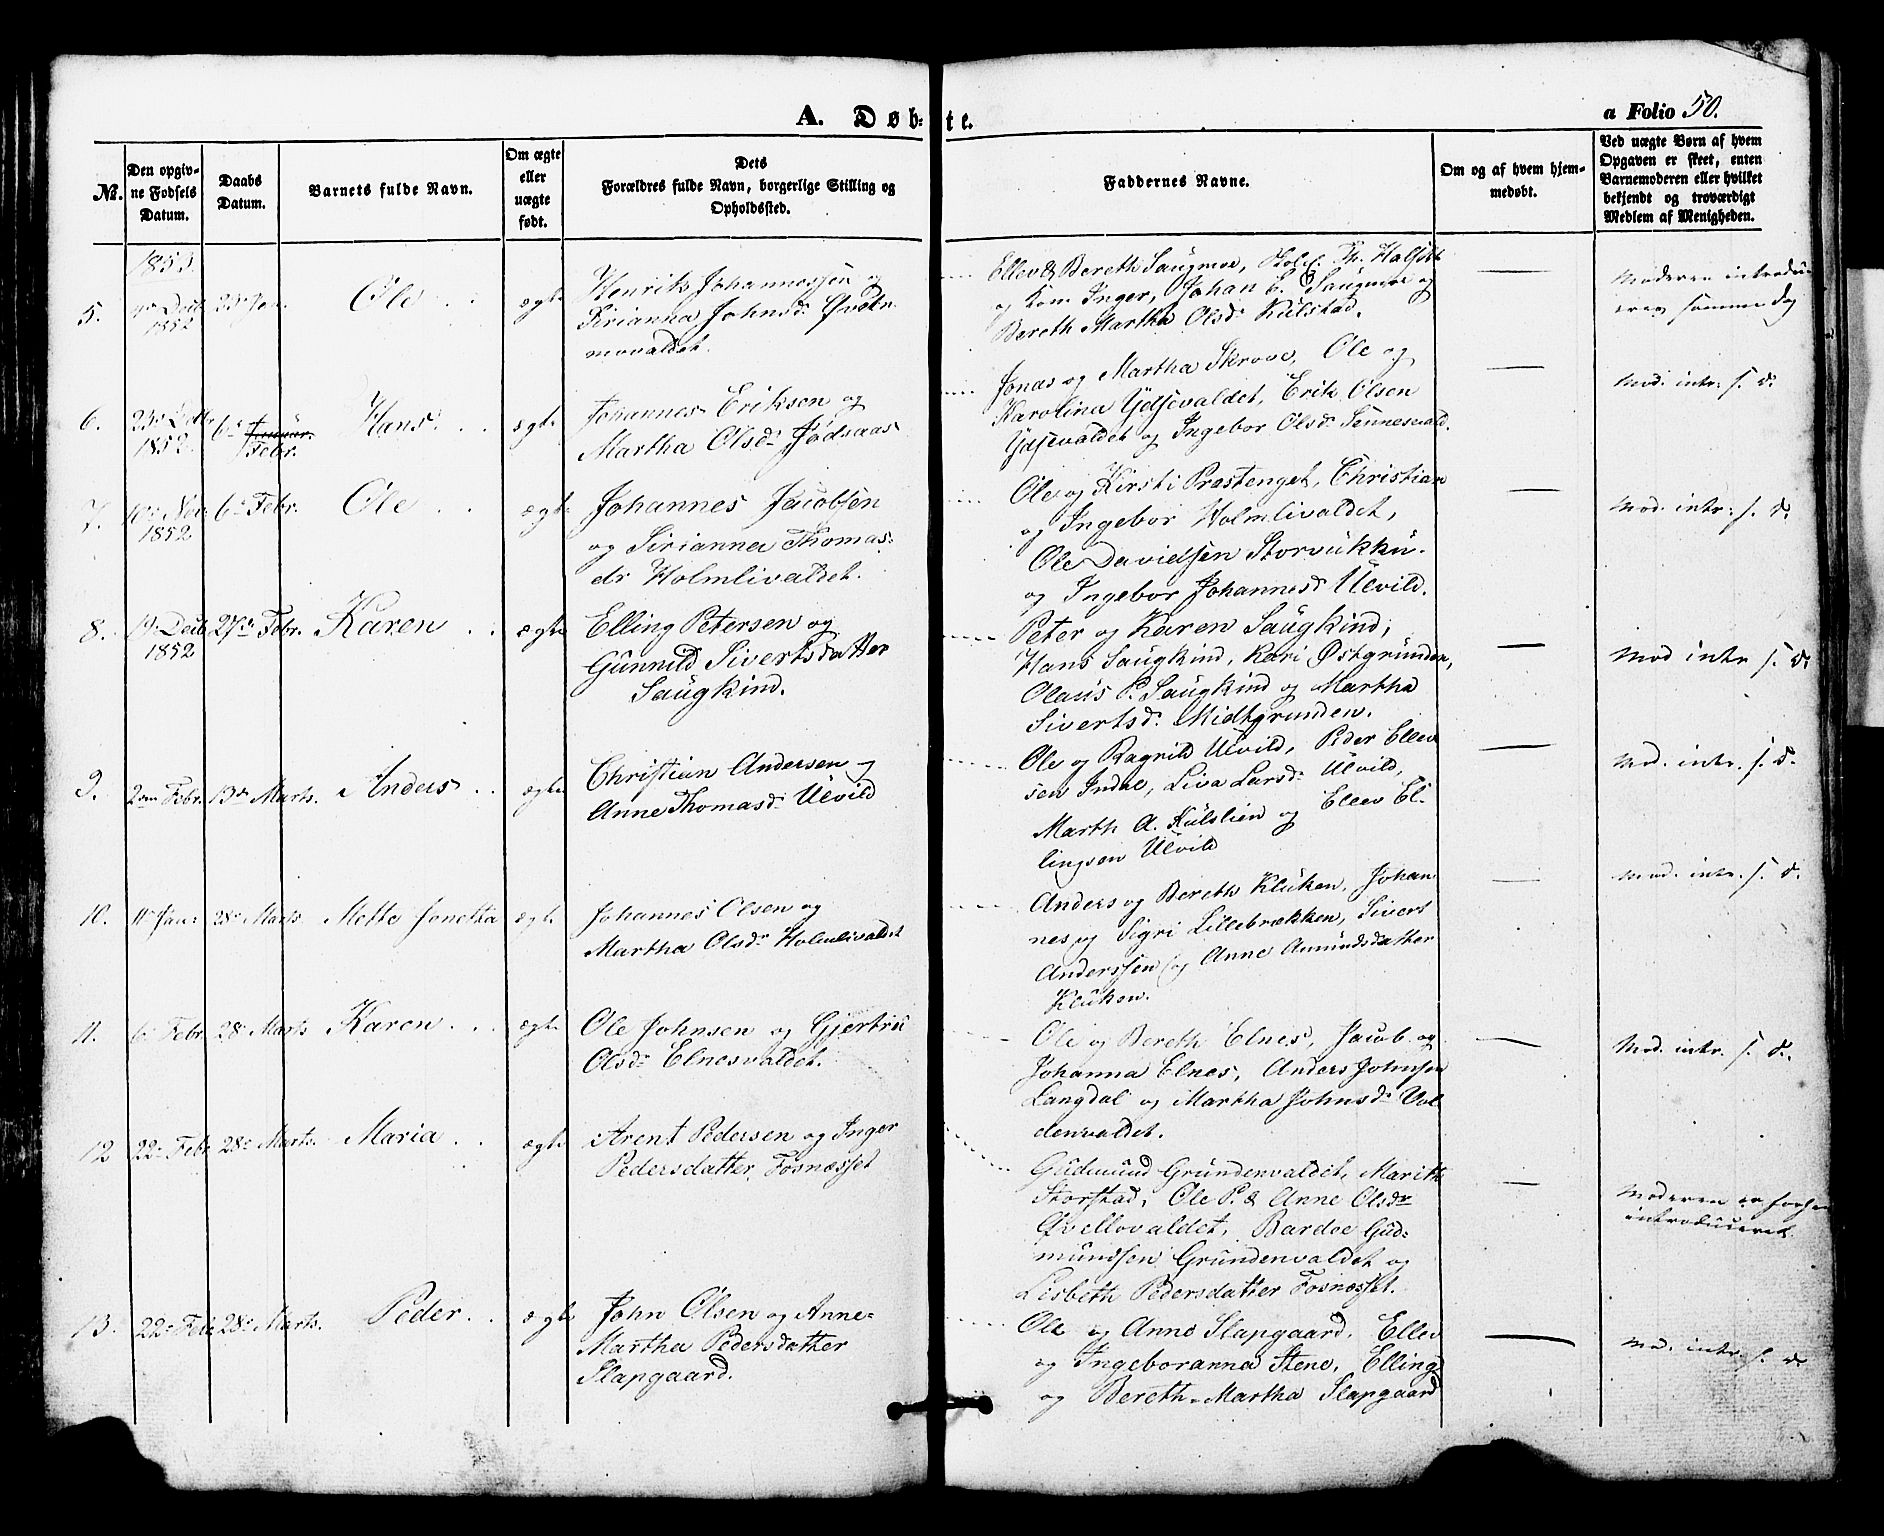 A. Døb- te.
a Folio 50.
No.
Den opgiv-
ne Fødsels
Datum.
Daabs
Datum.
Barnets fulde Navn.
Om ægte
eller
uægte
født.
Dets
Forældres fulde Navn, borgerlige Stilling og
Opholdssted.
Faddernes Navne.
Om og af hvem hjem-
medøbt.
Ved uægte Børn af hvem
Opgaven er skeet, enten
Barnemoderen eller hvilket
bekjendt og troværdigt
Medlem af Menigheden.
1853.
5.
Decb.
1852
23 Jan.
Ole
ægte
Henrik Johannessen og
Sirianna Johnsd.
movaldet.
Ellev & Bereth Saugmoe, Th. Halset
og Kone Inger, Johan E. Saugmoe og
Bereth Martha Olsd. Kulstad.
Moderen introdu-
samme Dag
6.
23
1852.
6te Januar.
Febr.
Hans
ægte
Johannes Eriksen og
Martha Olsd. Jødsaas
Jonas og Martha Skrove, Ole og
Karolina Ydsevaldet, Erik Olsen
Ydsevaldet og Ingebor Olsd. Sennesvald.
Mod. intr. s. d.
7.
10 Nov.
1852
6te Febr.
Ole
ægte
Johannes Jacobsen
og Sirianna Thomas-
dr Holmlivaldet.
Ole og Kirsti Prestenget, Christian
og Ingebor Holmlivaldet,
Ole Davidsen Storvukku
og Ingebor Johannesd. Ulvild.
Mod. intr. s. d.
8.
19 Decb.
1852
27de Febr.
Karen
ægte
Elling Petersen og
Gunnild Sivertsdatter
Saugkind.
Peter og Karen Saugkind,
Hans Saugkind, Kari Østgrunden,
Olaus P. Saugkind og Martha
Sivertsd. Midtgrunden.
Mod intr s. d.
9.
2den Febr.
13de Marts.
Anders
ægte
Christian Andersen og
Anne Thomasd. Ulvild
Ole og Ragnild Ulvild, Peder Ellev
sen Indal, Liva Larsd. Ulvild,
Marth A. Kulslien og Ellev El-
lingsen Ulvild
Mod. intr. s. d.
10.
11 Jan.
28 Marts
Mette Jonetta
ægte
Johannes Olsen og
Martha Olsdr Holmlivaldet
Anders og Bereth Kluken, Johan
nes og Sigri Lillebrækken, Sivert
Anderssen og Anne Amundsdatter
Kluken.
Mod. intr. s. d.
11.
6 Febr.
28 Marts
Karen
ægte
Ole Johnsen og Gjertru
Olsdr Elnesvaldet.
Ole og Bereth Elnes, Jacob og
Johanna Elnes, Anders Johnsen
Langdal og Martha Johnsdr Vol
denvaldet.
Mod. intr. s. d.
12
22 Febr
28 Marts.
Maria
ægte
Arent Pedersen og Inger
Pedersdatter, Fosnæsset
Gudmund Grundenvaldet, Marith
Storstad, Ole P. & Anne Olsdr
Qvellovaldet, Bardoe Gud-
mundsen Grundenvaldet og
Lisbeth Pedersdatter Fosnæsset.
Moderen er
introduceret.
13.
22 Feb
28 Marts.
Peder
ægte
John Olsen og Anne-
Martha Pedersdatter
Slapgaard.
Ole og Anne Slapgaard, Ellev
og Ingeboranna Stene, Elling
og Bereth-Martha Slapgaard
Mod. intr. s. d.